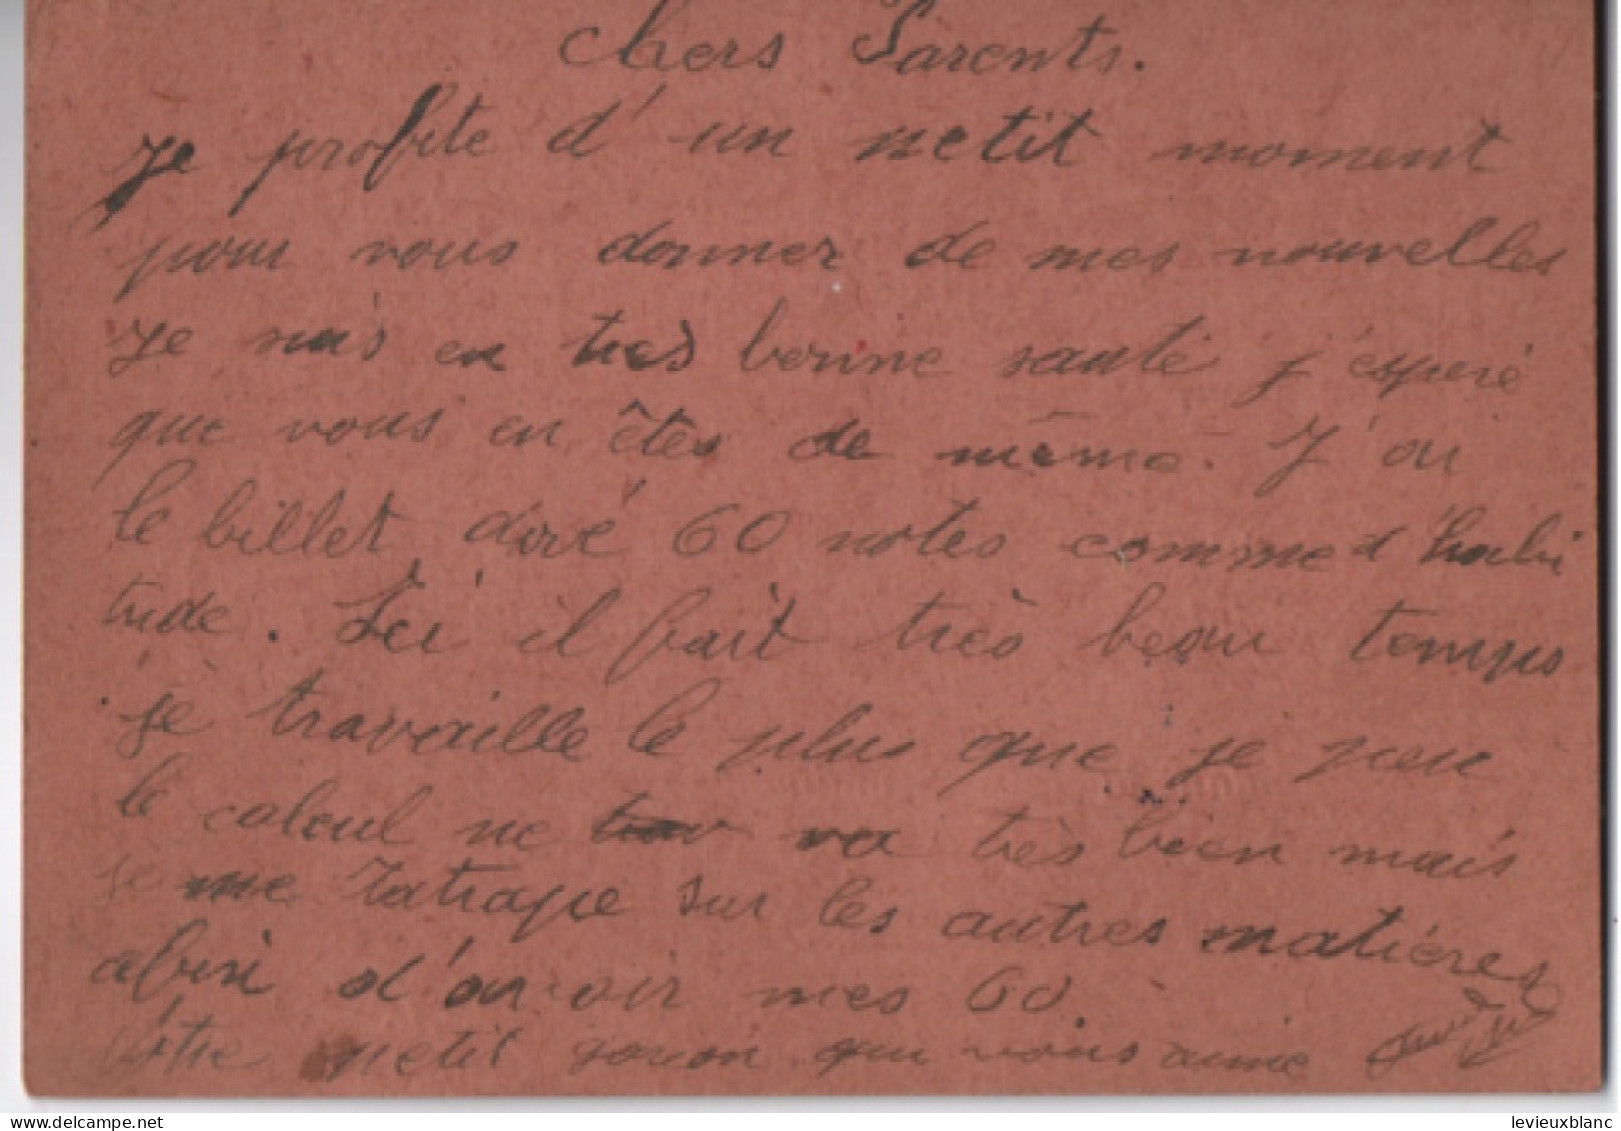 Chers Parents.
Je profite d'un petit moment
pour vous donner de mes nouvelles
Je suis en tres bonne santé j'éspère
que vous en êtes de même. J'ai
le billet doré 60 notes comme d'habi
tude. Ici il fait très beau temps
je travaille le plus que je peu
le calcul ne va très bien mais
je me ratrape sur les autres matières
afin d'avoir mes 60.
Votre petit garcon qui vous aime
levieuxblanc